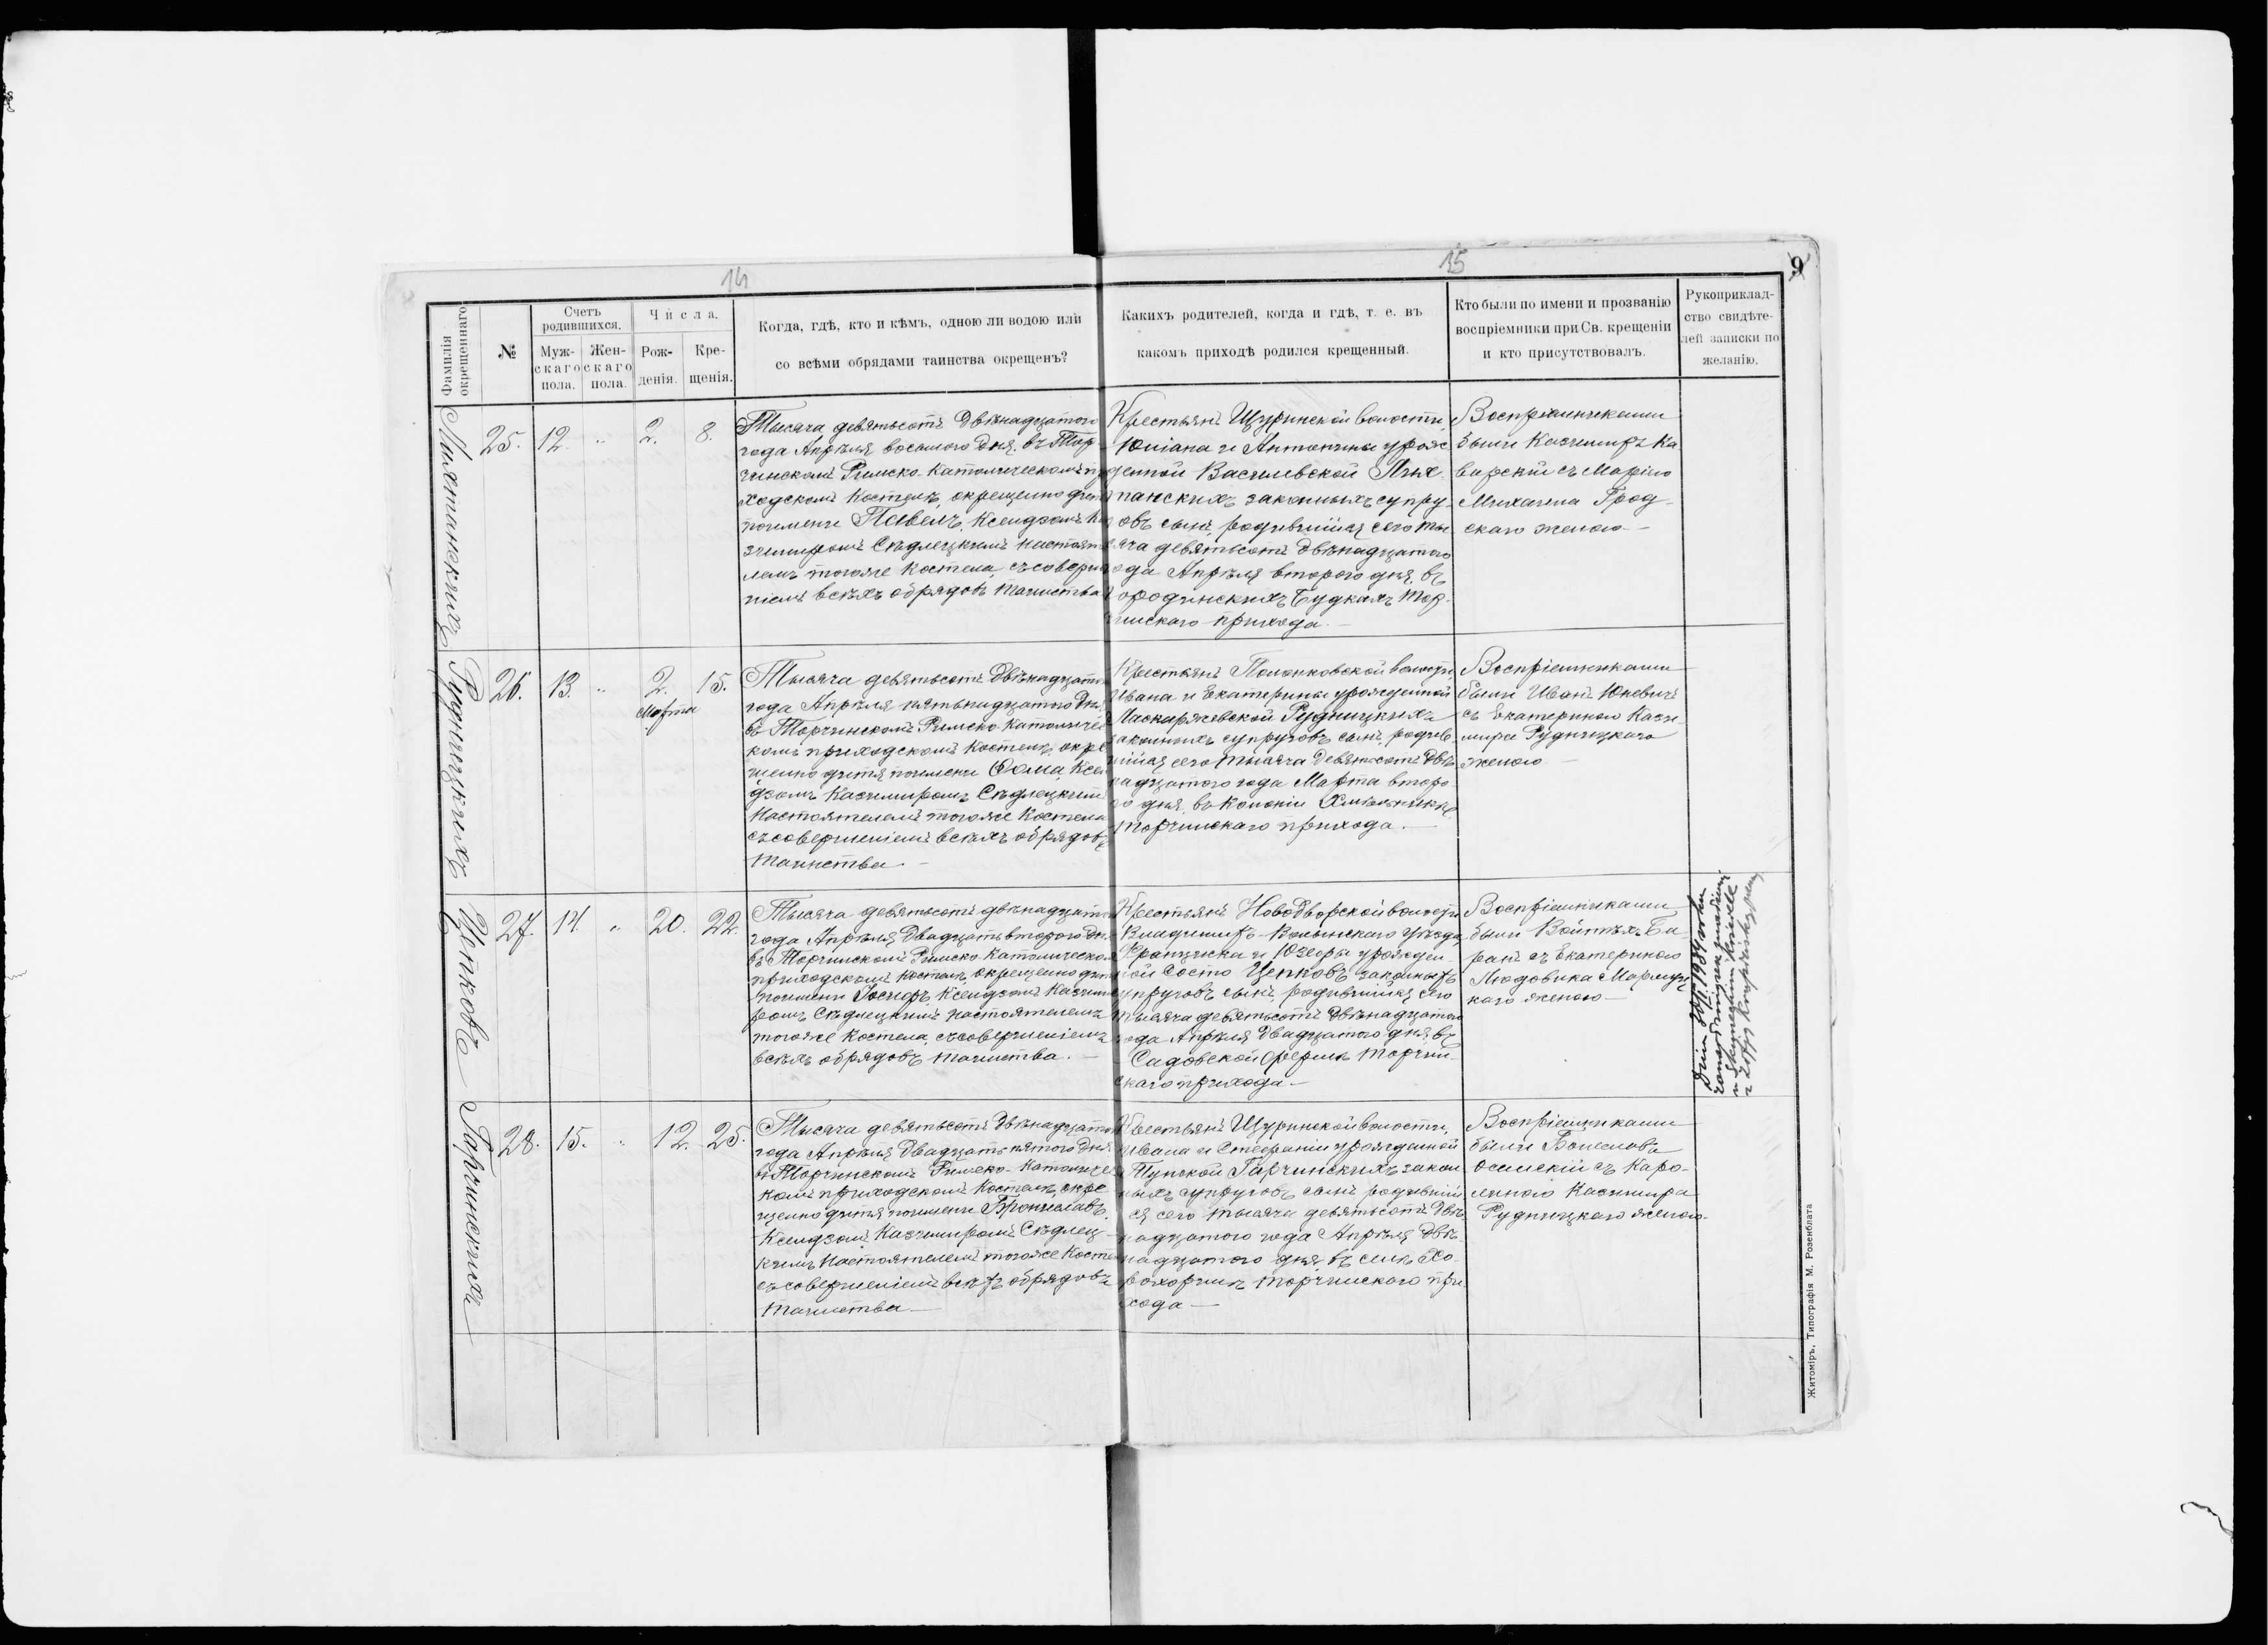 14
15
9
Фамилія окрещеннаго
№
Счетъ родившихся.
Мужскаго пола.
Женскаго пола.
Числа.
Рожденія.
Крещенія.
Когда, гдѣ, кто и кѣмъ, одною ли водою или
со всѣми обрядами таинства окрещенъ?
Какихъ родителей, когда и гдѣ, т. е. въ
какомъ приходѣ родился крещенный.
Кто были по имени и прозванію
воспріемники при Св. крещеніи
и кто присутствовалъ.
Рукоприклад-
ство свидѣте-
лей записки по
желанію.
25. 12. " 2. 8.
Тысяча девятьсотъ Двѣнадцатого
года Апрѣля восьмого дня, въ Тор-
чинскомъ Римско-Католическомъ
ходскомъ Костелѣ, окрещено
поимени Павелъ, Ксендзомъ
зимиромъ Сѣдлецкимъ
лемъ тогоже Костела,
ніемъ всѣхъ обрядовъ таинства
Крестьянъ Щуринской волости,
Юліана и Антонины урож
денной Василевской
панскихъ законныхъ супру-
овъ сынъ, родившійся сего ты
яча девятьсотъ двѣнадцатого
ода Апрѣля второго дня, въ
ородинскихъ Будкахъ Тор-
чинскаго прихода.
Воспріемниками
были Казимиръ Ка
варскій съ Маріею
Михаила Грод-
скаго женою
Рудницкихъ
26. 13. " 2. Марта 15.
Тысяча девятьсотъ Двѣнадцатого
года Апрѣля пятьнадцатого Дня,
въ Торчинскомъ Римско-Католичес
комъ приходскомъ Костелѣ, окре
щено дитя поимени Ѳома, Ксен
дзомъ Казимиромъ Сѣдлецкимъ
Настоятелемъ тогоже Костела
съ совершеніемъ всѣхъ обрядовъ
таинства.
Крестьянъ Полонковской волости,
Ивана и Екатерины урожденной
Маскаржевской Рудницкихъ
законныхъ супруговъ сынъ, родив
шійся сего тысяча девятьсотъ Двѣ
надцатого года Марта второ-
го дня, въ Колоніи
Торчинскаго прихода.
Воспріемниками
были Иванъ Юневичъ
съ Екатериною Кази-
мира Рудницкаго
женою
Цепковъ
27. 14. " 20. 22.
Тысяча девятьсотъ двѣнадцатого
года Апрѣля Двадцатьвторого Дня
въ Торчинскомъ Римско-Католическомъ
приходскомъ Костелѣ, окрещено дитя
поимени Іосифъ, Ксендзомъ Казими
ромъ Сѣдлецкимъ Настоятелемъ
тогоже Костела, съ совершеніемъ
всѣхъ обрядовъ таинства.
Крестьянъ Новодворской волости
Владиміръ-Волынскаго уѣзда,
Франциска и Юзефы урожден-
ной Состо Цепковъ законныхъ
супруговъ сынъ, родившійся сего
тысяча девятьсотъ Двѣнадцатого
года Апрѣля Двадцатого дня, въ
Садовской фермѣ Торчин-
скаго прихода
Воспріемниками
были Войтѣхъ Ба-
ранъ съ Екатериною
Людовика
каго женою
1939 roku
Гарчинскихъ
28. 15. " 12. 25.
Тысяча девятьсотъ Двѣнадцатого
года Апрѣля Двадцатьпятого Дня
въ Торчинскомъ Римско-Католичес
комъ приходскомъ Костелѣ, окре
щено дитя поимени Брониславъ,
Ксендзомъ Казимиромъ Сѣдлец-
кимъ Настоятелемъ тогоже Косте
съ совершеніемъ всѣхъ обрядовъ
таинства
Крестьянъ Щуринской волости,
Ивана и Стефаніи урожденной
Тупской Гарчинскихъ закон
ныхъ супруговъ сынъ родивший
ся сего тысяча девятьсотъ Двѣ
надцатого года Апрѣля Двѣ-
надцатого дня, въ селѣ Хо-
рохоринѣ Торчинскаго при
хода
Воспріемниками
были Болеславъ
Осинскій съ Каро-
линою Казимира
Рудницкаго женою
Житомиръ, Типографія М. Розенблата